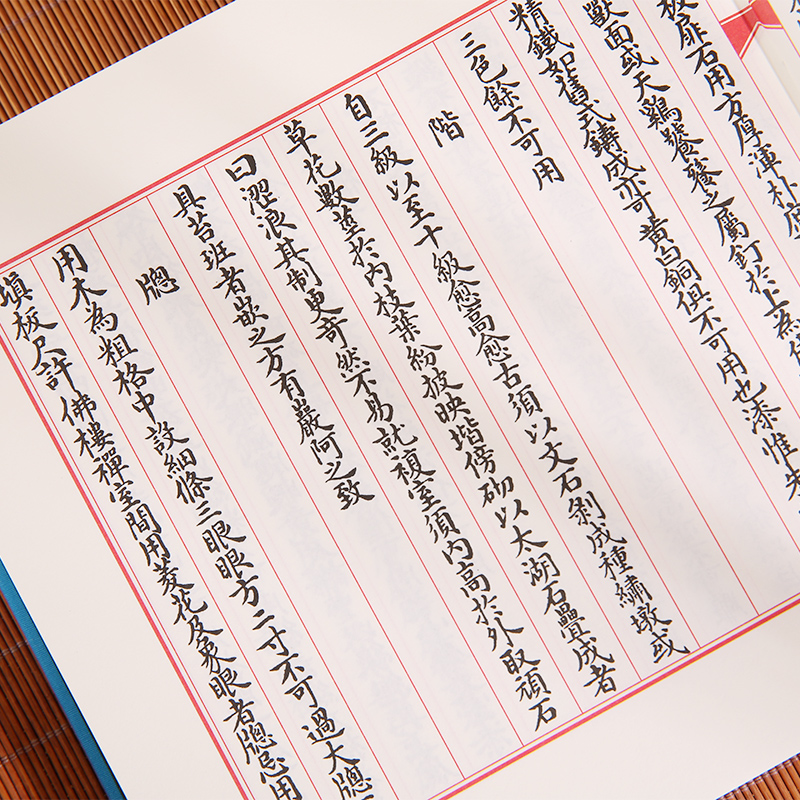 板扉石用方厚渾朴
獸面或天鷄饕餮之屬釘於上為
精鐵如舊式鑄成亦可黃白銅俱不可用也漆惟
三色餘不可用
階
自三級以至十級愈高愈古須以文石剝成種繡墩或
草花數莖於內枝葉紛披映堦傍砌以太湖石疊成者
曰澀浪其制更奇然不易就複室須內高於外取頑石
具苔班者嵌之方有巖阿之致
牕
用木為粗格中設細條三眼眼方二寸不可過大牕
填板尺許佛樓禪室間用菱花及象眼者牕忌用